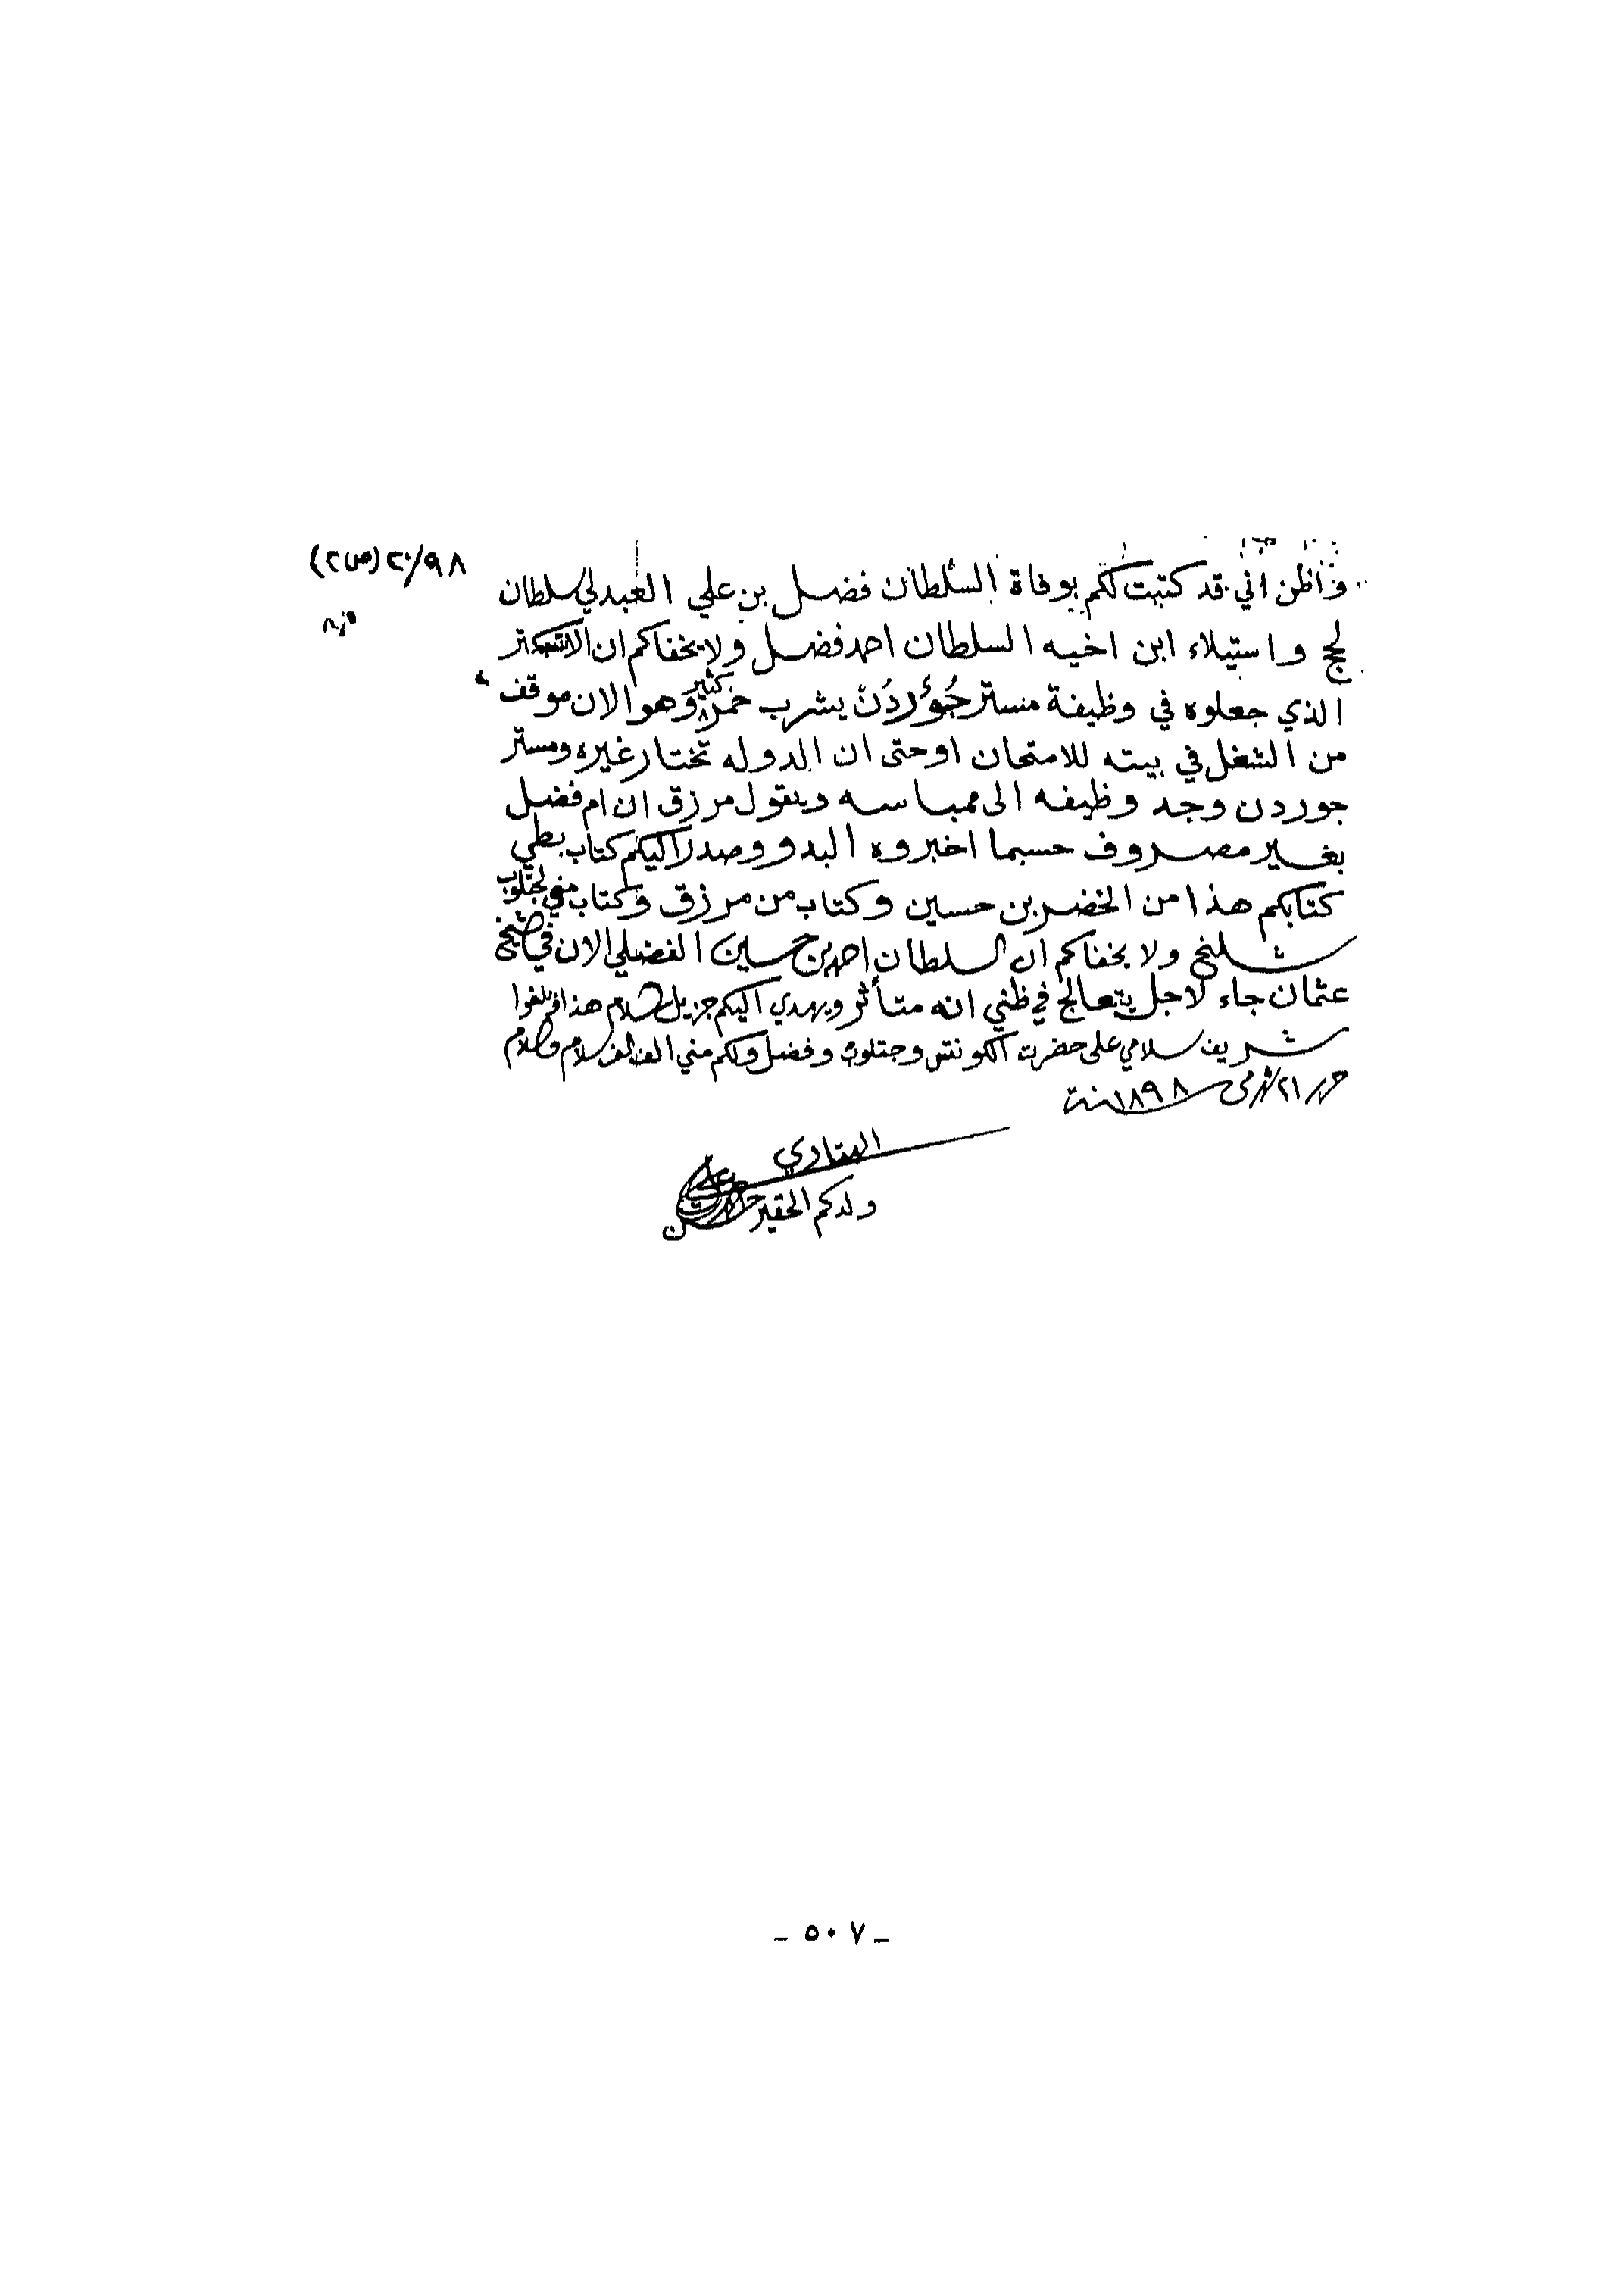 ٢٠/٩٨ (ص٢)
واظن اني قد كتبت لكم بوفاة السلطان فضل بن علي العبدلي سلطان
لحج واستيلاء ابن اخيه السلطان احمد فضل ولا يخفاكم ان
الذي جعلوه في وظيفة مستر جُؤردَن يشرب خمر كثير وهو الان موقف
من الشغل في بيته للامتحان اوحتى ان الدوله تختار غيره ومستر
جوردن وجد وظيفه الى ممباسه ويقول مرزق ان ام فضل
بغير مصروف حسبما اخبروه البدو وصدر اليكم كتاب بطي
كتابكم هذا من الخضر بن حسين وكتاب من مرزق وكتاب مني لجتلوب
شلنج ولا يخفاكم ان السلطان احمد بن حسين الفضلي الان في شيخ
عثمان جاء لاجل يتعالج في ظني انه متأثر ويهدي اليكم جزيل السلام هذا وبلغوا
شريف سلامي على حضرت الكونتس وجتلوب وفضل ولكم مني الف الف سلام والسلام
حرر ٢١ شهر مى سنة ١٨٩٨
ولدكم الحقير
- ٥٠٧ -